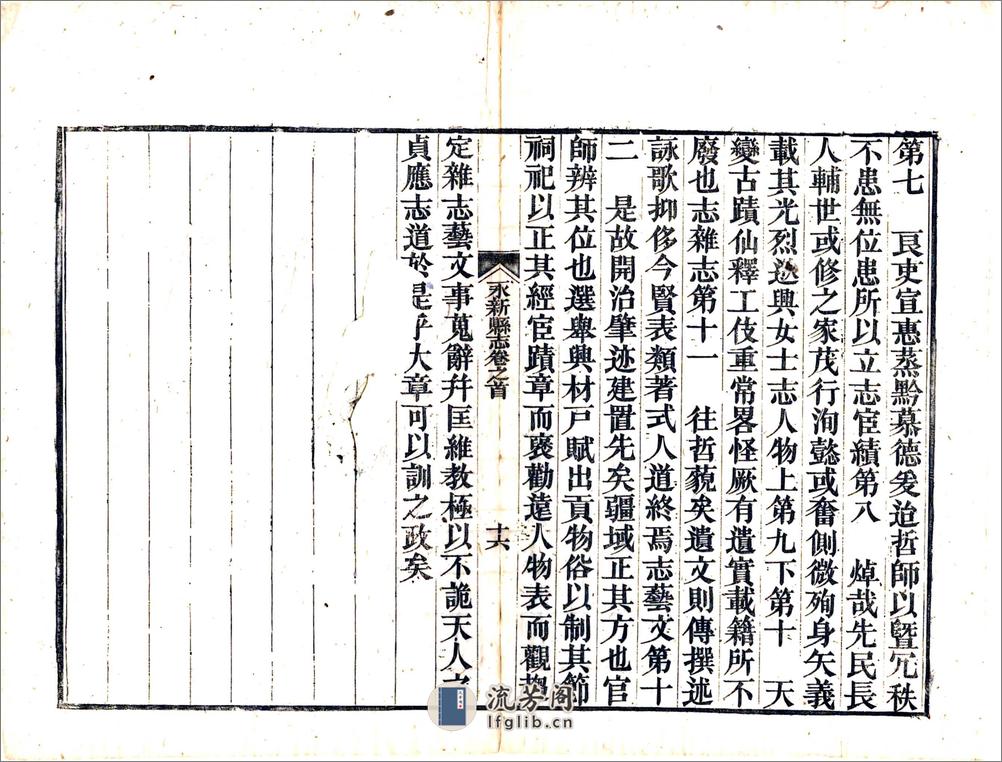 第七　良吏宣惠蒸黔慕德爰迨哲師以暨冗秩
不患無位患所以立志宦績第八　焯哉先民長
人輔世或修之家茂行洵懿或奮側微殉身矢義
載其光烈迭興女士志人物上第九下第十　天
變古蹟仙釋工伎重常畧怪厥有遺實載籍所不
廢也志雜志第十一　往哲藐矣遺文則傳撰述
詠歌抑侈今賢表類著式人道終焉志藝文第十
二　是故開治肇迹建置先矣疆域正其方也官
師辨其位也選舉興材戸賦出貢物俗以制其節
祠祀以正其經宦蹟章而褒勸遠人物表而觀
永新縣志卷之首
十六
定雜志藝文事蒐辭幷匡維教極以不詭天人之
貞應志道於是乎大章可以訓之政矣
流芳阁
lfglib.cn